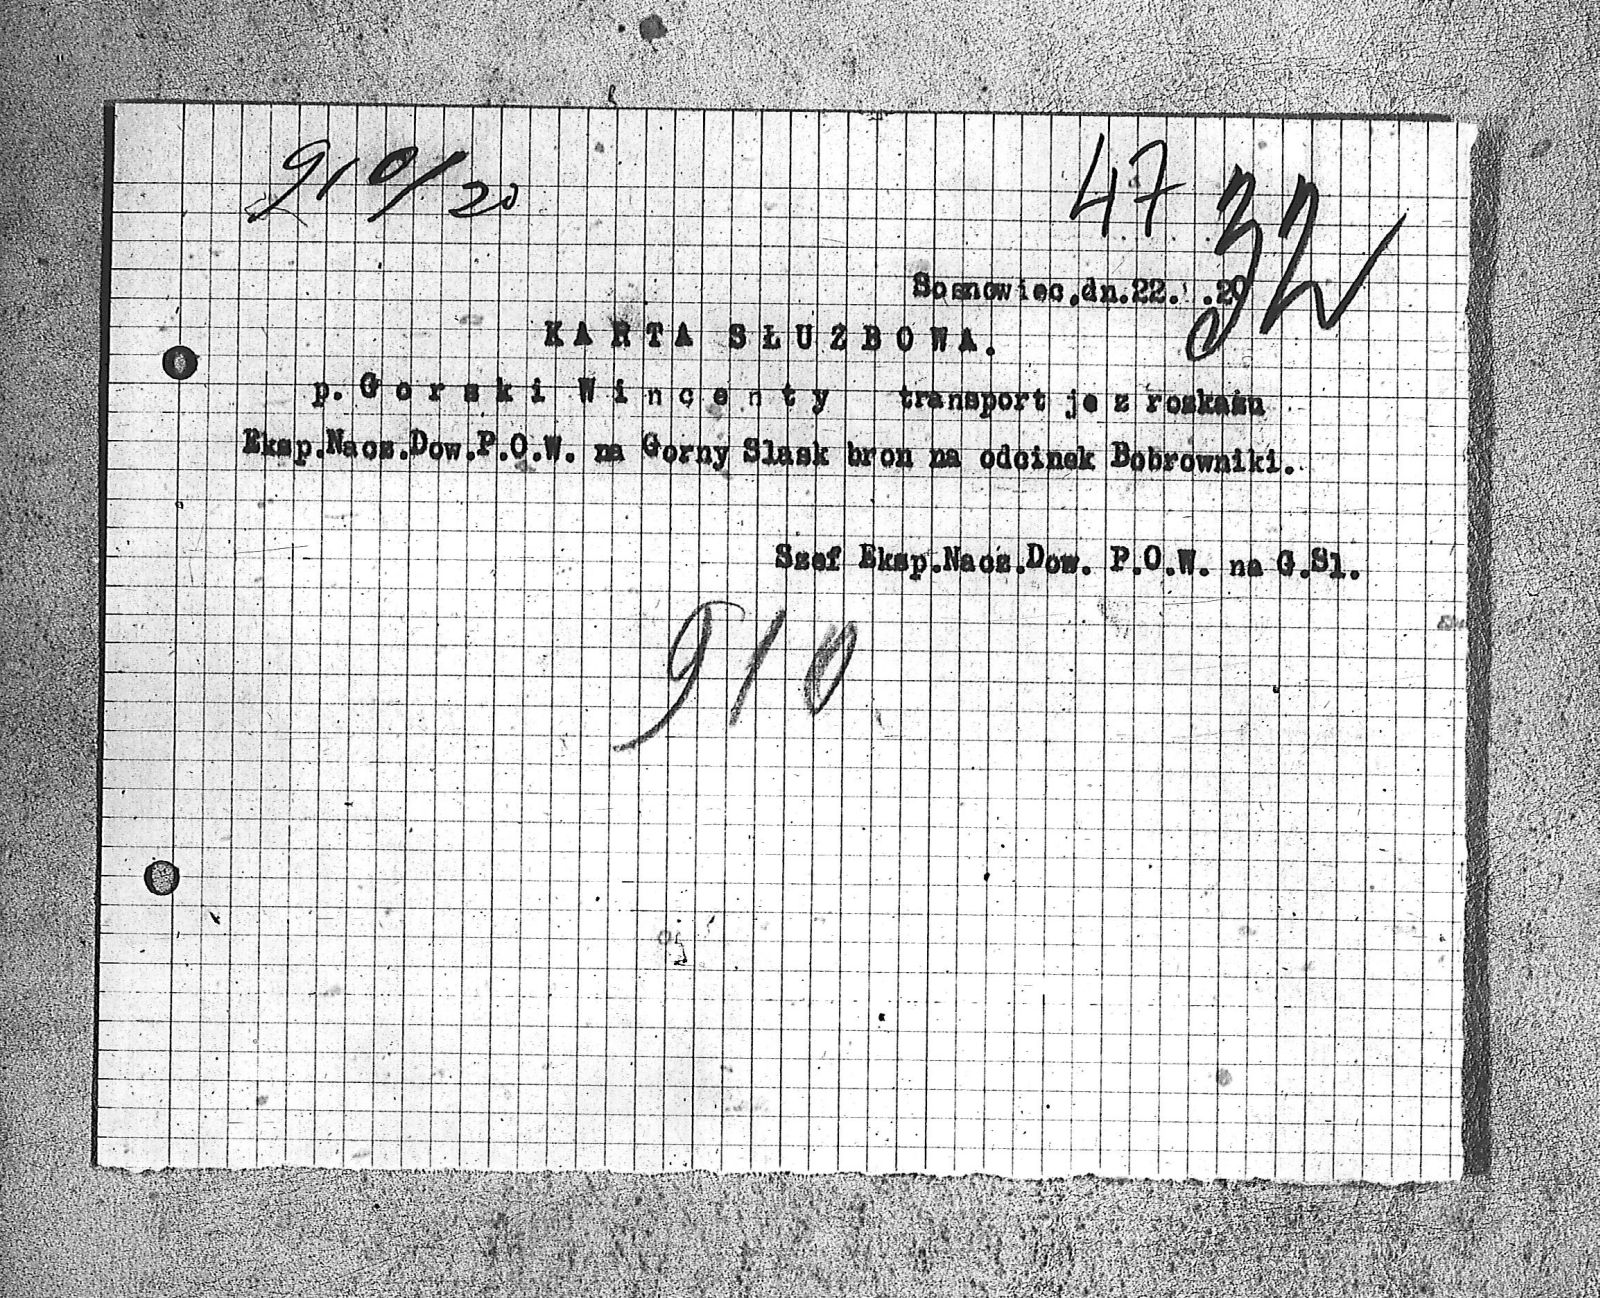 910/20
47 32
Sosnowiec,dn.22. .20
KARTA SŁUZBOWA.
p. Gorski Wincenty transportje z roskazu
Eksp.Nacz.Dow.P.O.W. na Gorny Slask bron na odcinek Bobrowniki.
Szef Eksp.Nacz.Dow. P.O.W. na G.Sl.
910